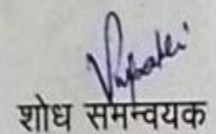 शोध समन्वयक